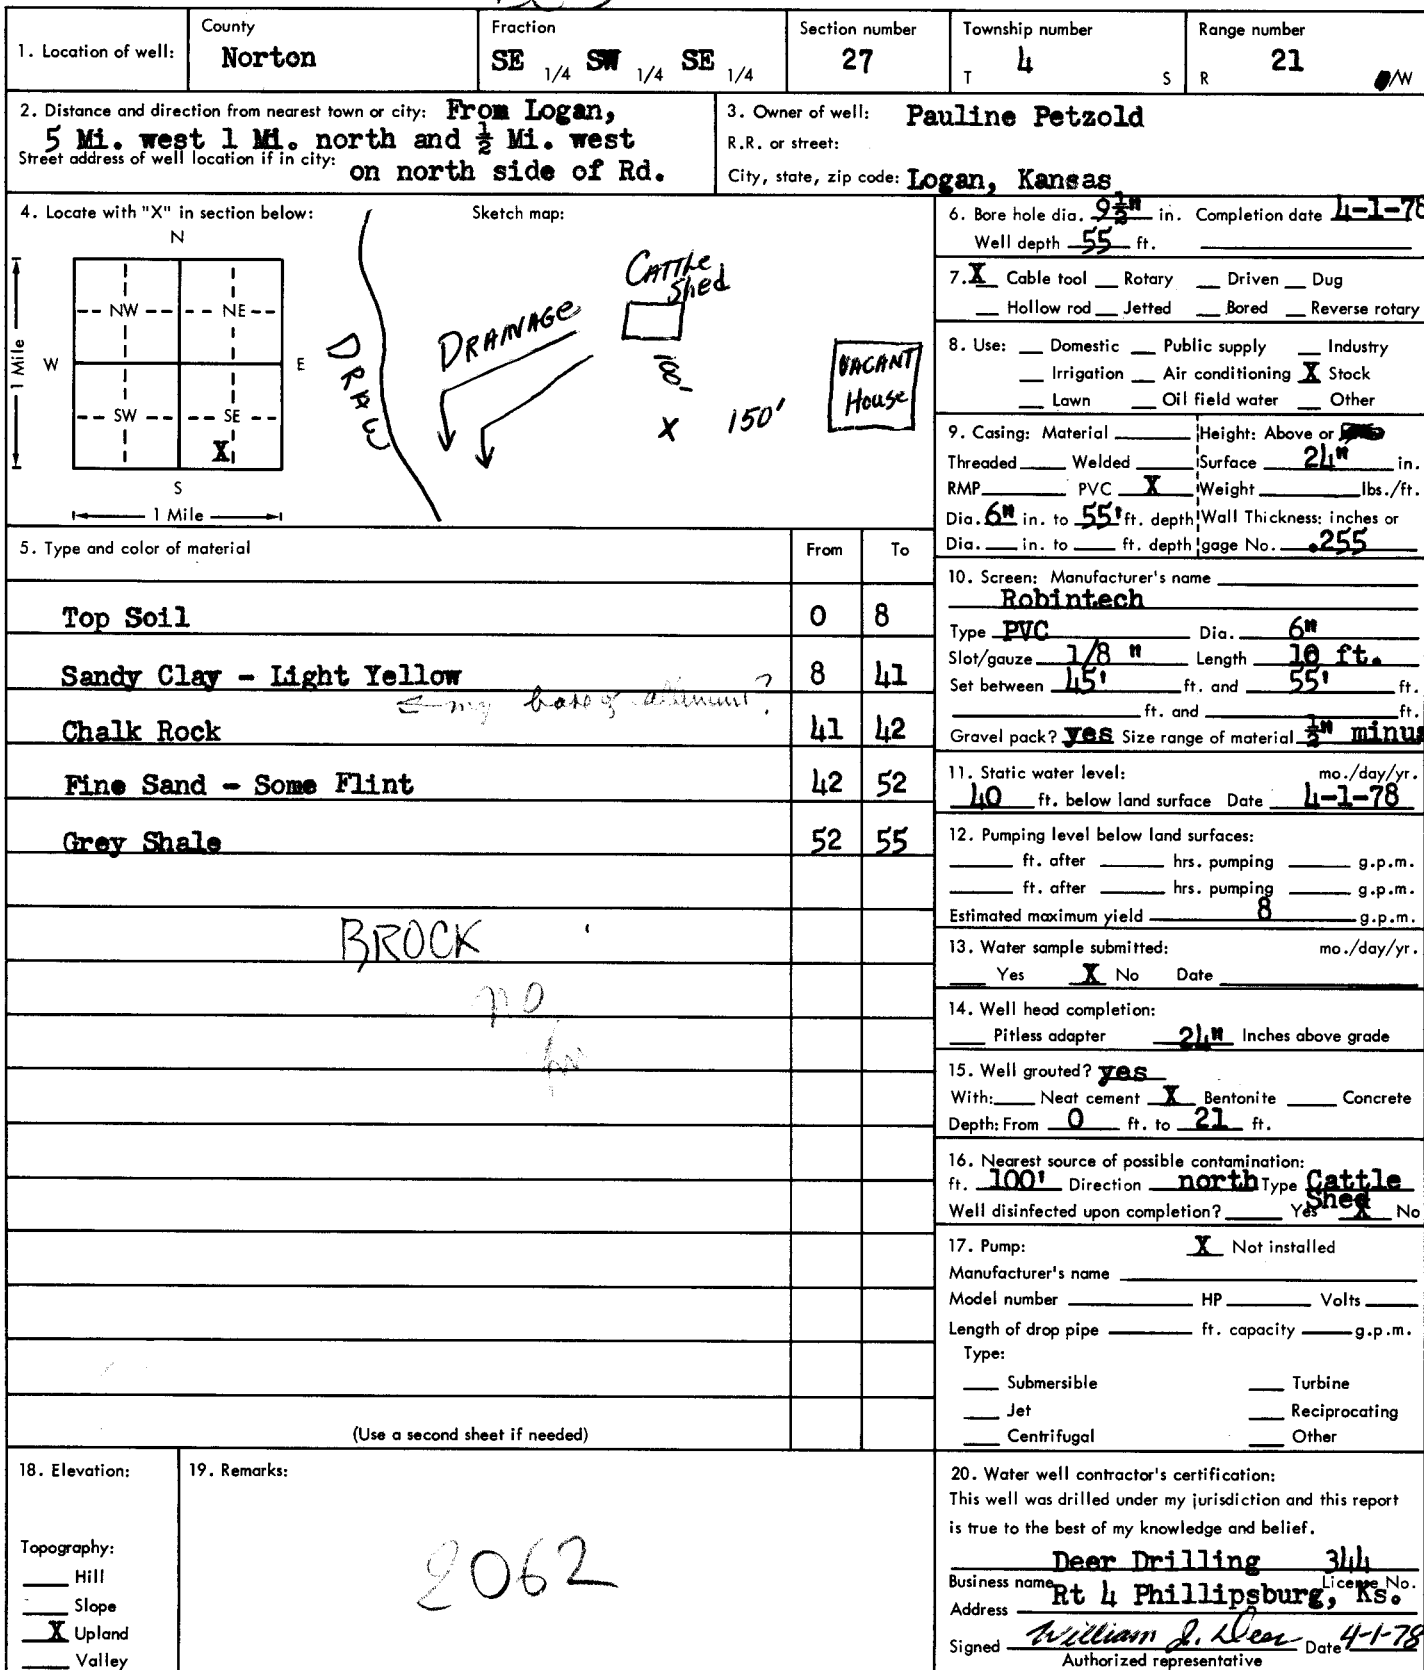 1. Location of well:
County
Norton
Fraction
SE 1/4 SW 1/4 SE 1/4
Section number
27
Township number
T 4 S
Range number
R 21 /W
2. Distance and direction from nearest town or city: From Logan,
5 Mi. west 1 Mi. north and ½ Mi. west
Street address of well location if in city: on north side of Rd.
3. Owner of well: Pauline Petzold
R.R. or street:
City, state, zip code: Logan, Kansas
4. Locate with "X" in section below:
N
NW NE
W E
SW SE
X
S
1 Mile
1 Mile
Sketch map:
DRAW
DRAINAGE
CATTLE
Shed
100'
X 150'
VACANT
House
5. Type and color of material From To
Top Soil 0 8
Sandy Clay - Light Yellow 8 41
my base of ?
Chalk Rock 41 42
Fine Sand - Some Flint 42 52
Grey Shale 52 55
BROCK
no
(Use a second sheet if needed)
6. Bore hole dia. 9½" in. Completion date 4-1-78
Well depth 55 ft.
7. X Cable tool Rotary Driven Dug
Hollow rod Jetted Bored Reverse rotary
8. Use: Domestic Public supply Industry
Irrigation Air conditioning X Stock
Lawn Oil field water Other
9. Casing: Material Height: Above or
Threaded Welded Surface 24" in.
RMP PVC X Weight lbs./ft.
Dia. 6" in. to 55' ft. depth Wall Thickness: inches or
Dia. in. to ft. depth gage No. .255
10. Screen: Manufacturer's name
Robintech
Type PVC Dia. 6"
Slot/gauze 1/8 " Length 10 ft.
Set between 45' ft. and 55' ft.
ft. and ft.
Gravel pack? yes Size range of material ½" minus
11. Static water level: mo./day/yr.
40 ft. below land surface Date 4-1-78
12. Pumping level below land surfaces:
ft. after hrs. pumping g.p.m.
ft. after hrs. pumping g.p.m.
Estimated maximum yield 8 g.p.m.
13. Water sample submitted: mo./day/yr.
Yes X No Date
14. Well head completion:
Pitless adapter 24" Inches above grade
15. Well grouted? yes
With: Neat cement X Bentonite Concrete
Depth: From 0 ft. to 21 ft.
16. Nearest source of possible contamination:
ft. 100' Direction north Type Cattle
Shed
Well disinfected upon completion? Yes X No
17. Pump: X Not installed
Manufacturer's name
Model number HP Volts
Length of drop pipe ft. capacity g.p.m.
Type:
Submersible Turbine
Jet Reciprocating
Centrifugal Other
18. Elevation:
Topography:
Hill
Slope
X Upland
Valley
19. Remarks:
2062
20. Water well contractor's certification:
This well was drilled under my jurisdiction and this report
is true to the best of my knowledge and belief.
Deer Drilling 344
Business name License No.
Address Rt 4 Phillipsburg, Ks.
Signed William J. Deer Date 4-1-78
Authorized representative